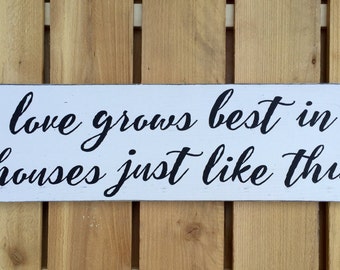 love grows best in
houses just like thi